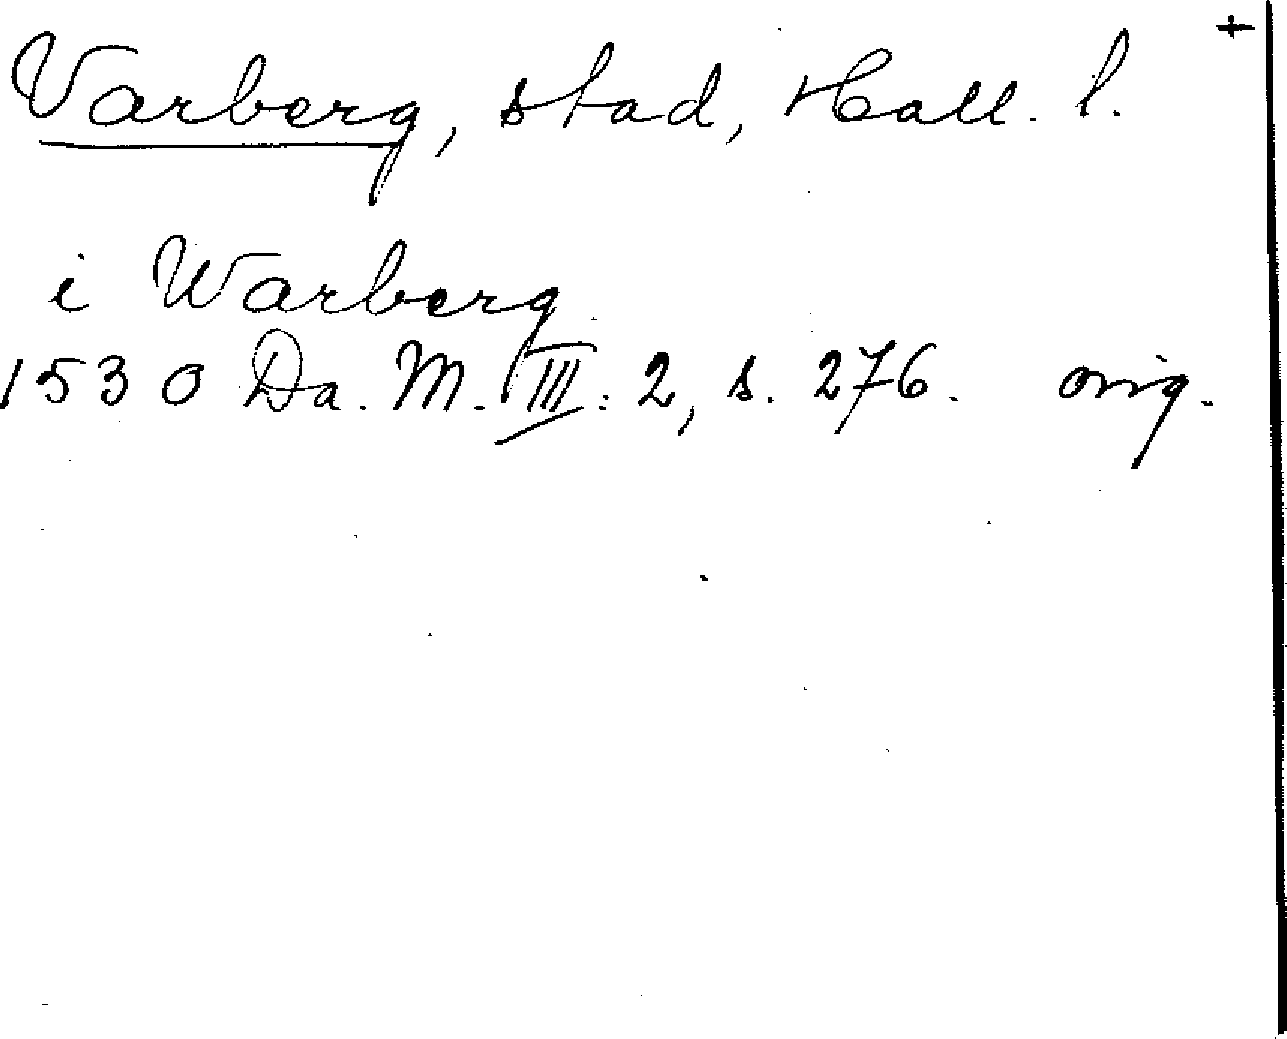 Varberg, stad, Hall. l. +
i Warberg
1530 Da. M. III: 2, s. 276. orig.